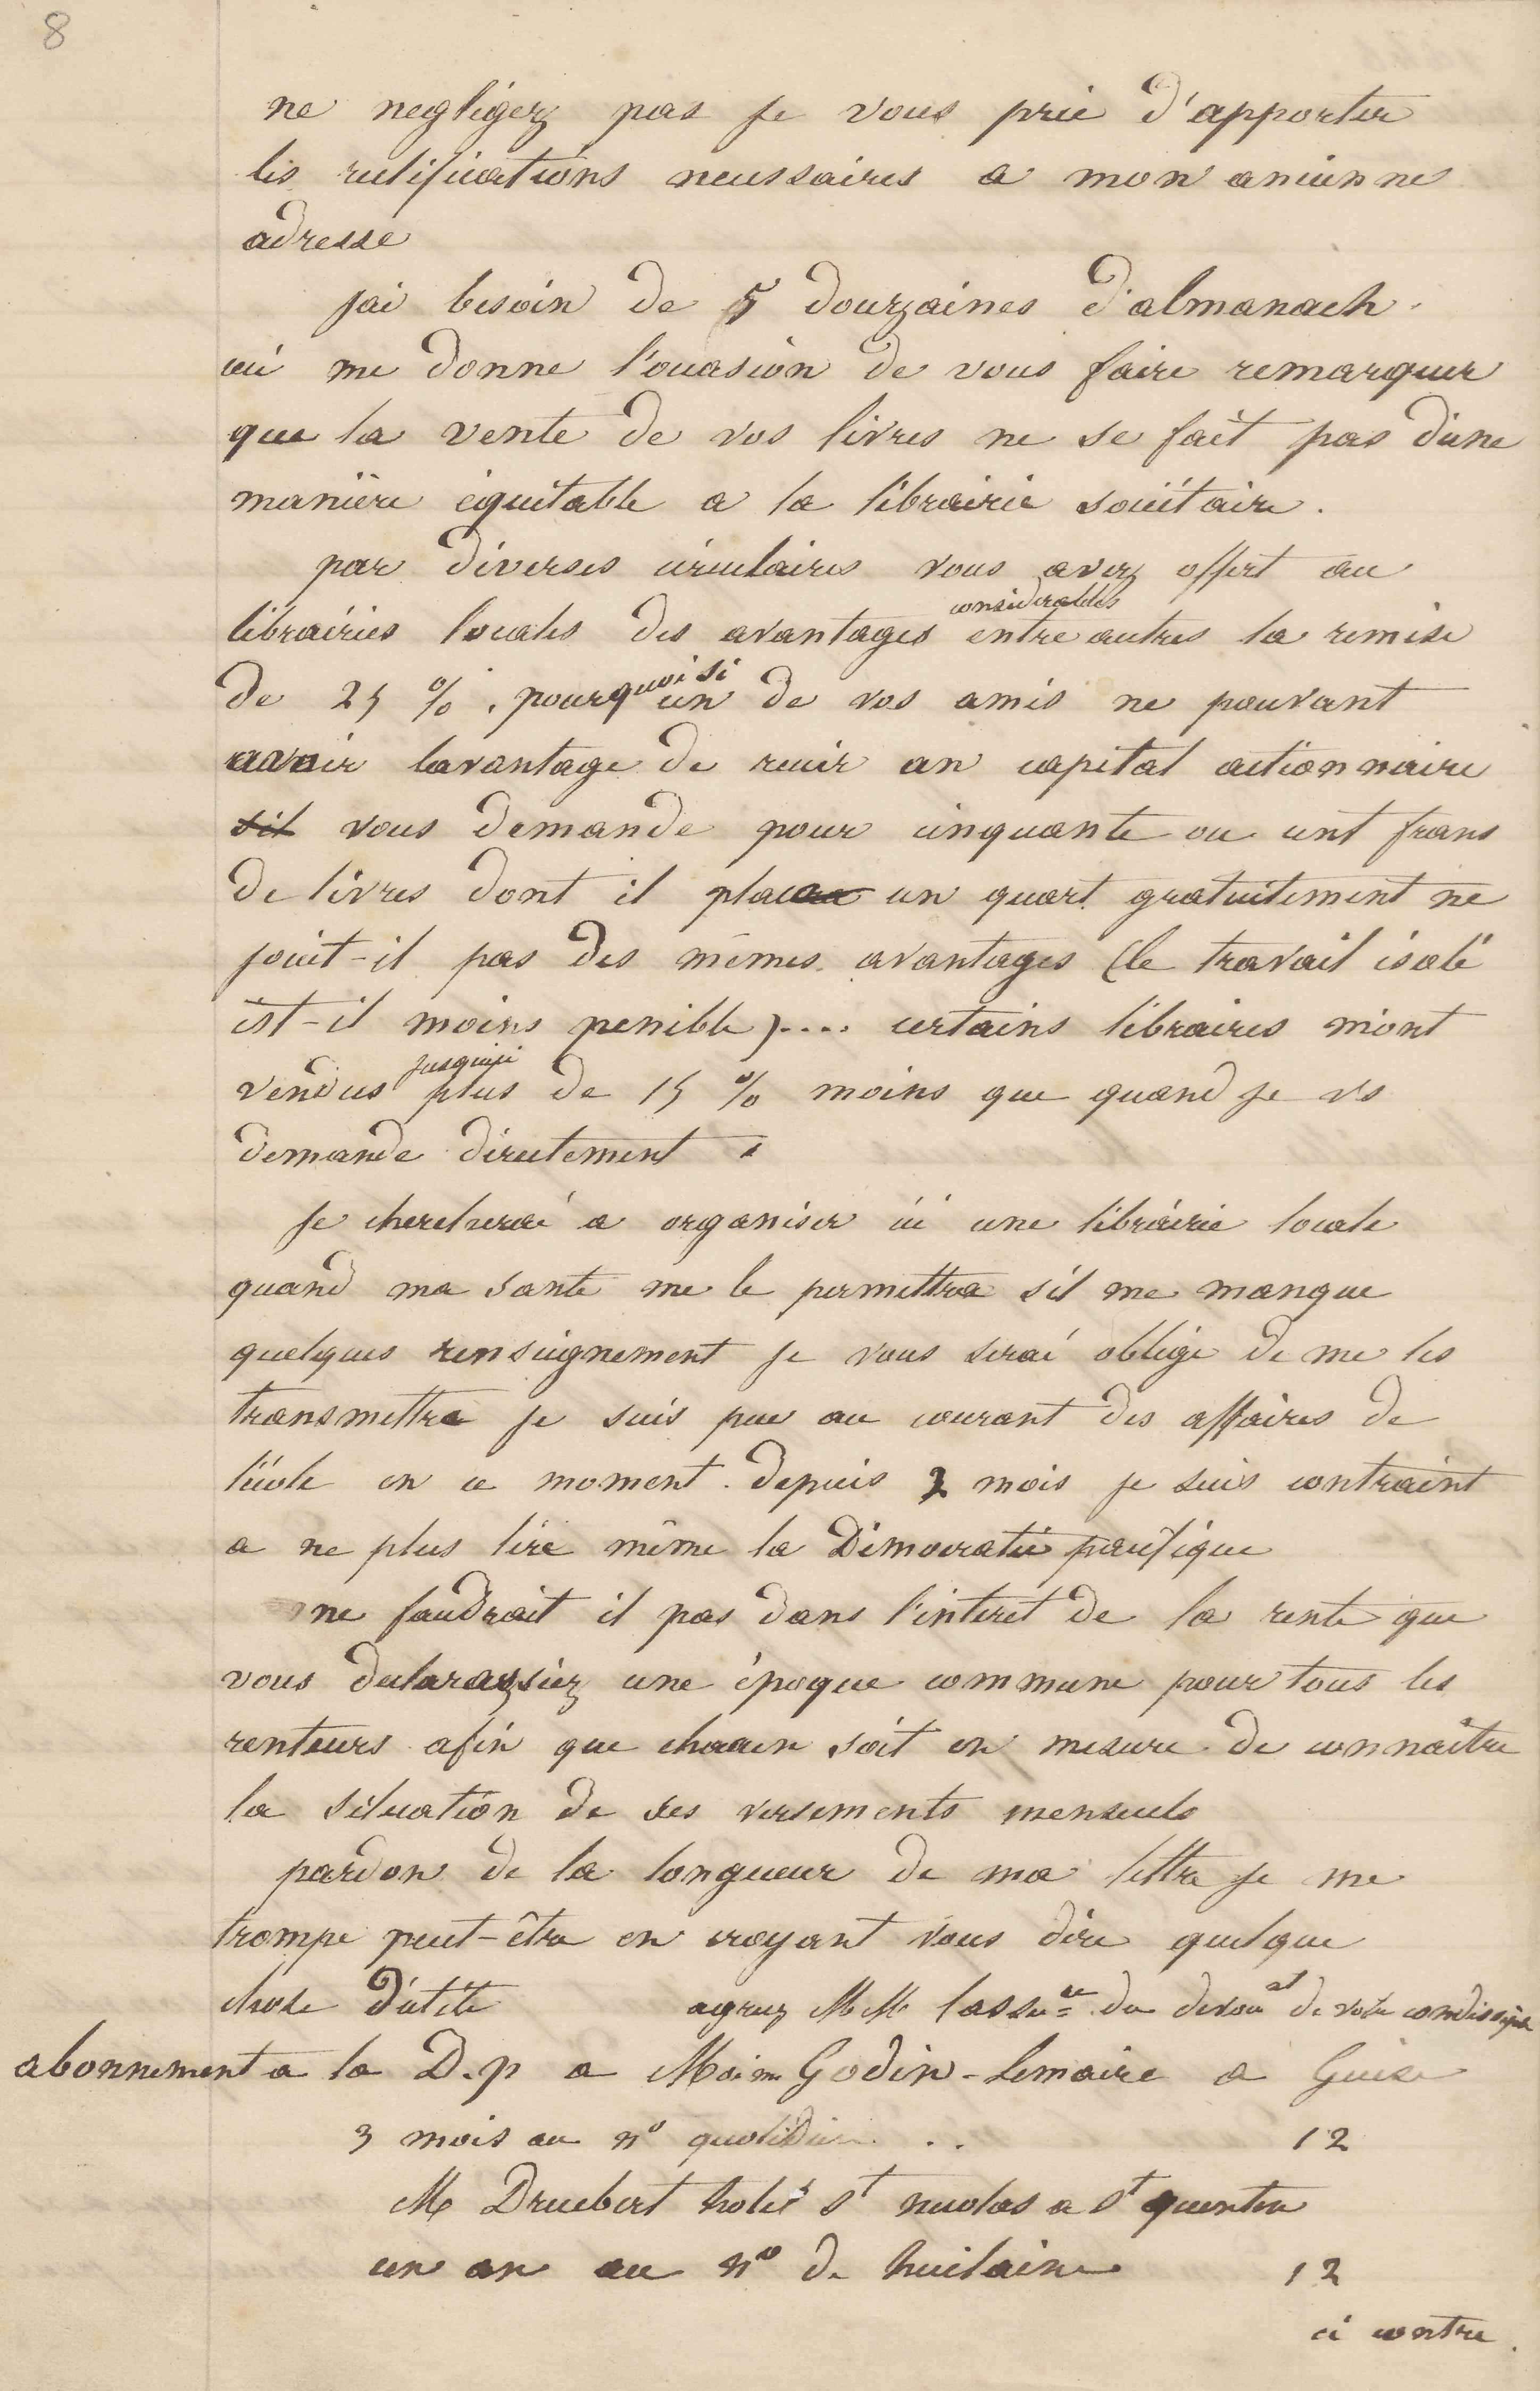 8
ne negligez pas je vous prie d'apporter
les rectifications necessaires a mon ancienne
adresse
jai besoin de 5 douzaines d'almanach.
ceci me donne l'occasion de vous faire remarquer
que la vente de vos livres ne se fait pas d'une
manière équitable a la librairie sociétaire.
par diverses circulaires vous avez offert au
considerables
librairies locales des avantages entre autres la remise
de 25 %. pourquoi si un de vos amis ne pouvant
avoir lavantage de reunir un capital actionnaire
sil vous demande pour cinquante ou cent francs
de livres dont il place un quart gratuitement ne
jouit-il pas des mêmes avantages (le travail isolé
est-il moins penible).... certains libraires m'ont
jusquici
vendus plus de 15 % moins que quand je vs
demande directement.
Je chercherai a organiser ici une librairie locale
quand ma santé me le permettra s'il me manque
quelques renseignement je vous serai obligé de me les
transmettre je suis peu au courant des affaires de
l'école en ce moment. depuis 2 mois je suis contraint
a ne plus lire même la Démocratie pacifique
ne faudrait il pas dans l'interet de la rente que
vous declarassiez une époque commune pour tous les
renteurs afin que chacun soit en mesure de connaître
la situation de ses versements mensuels
pardon de la longueur de ma lettre je me
trompe peut-être en croyant vous dire quelque
chose d'utile agreez MM lassce du devoumt de votre condisciple
abonnement a la D.p a Godin-Lemaire a Guise
3 mois au n° quotidien . . 12
M Druebert hotel St nicolas a St quentin
un an au n° de huitaine 12
ci contre.